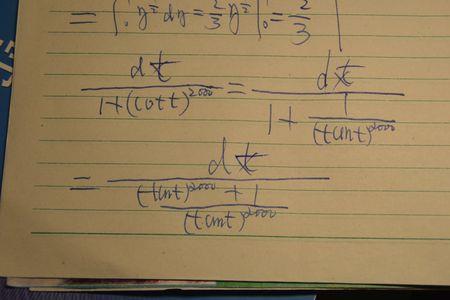 = ∫₀¹ y^½ dy = 2/3 y^(3/2) |₀¹ = 2/3
dt/(1+(cot t)^2000) = dt/(1 + 1/(tan t)^2000)
= dt/(((tan t)^2000 + 1)/(tan t)^2000)